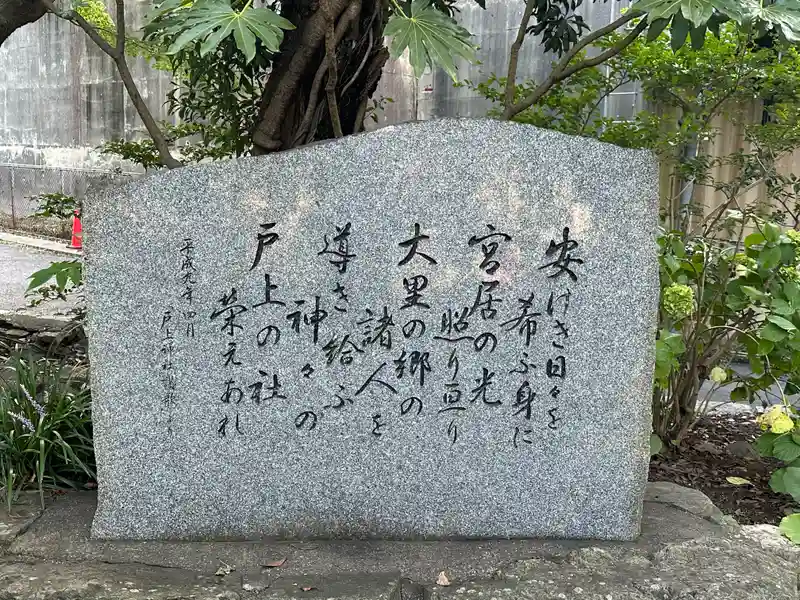 安けき日々を
希ふ身に
宮居の光
照り亘り
大里の郷の
諸人を
導き給ふ
神々の
戸上の社
栄えあれ
平成九年四月
戸上神社